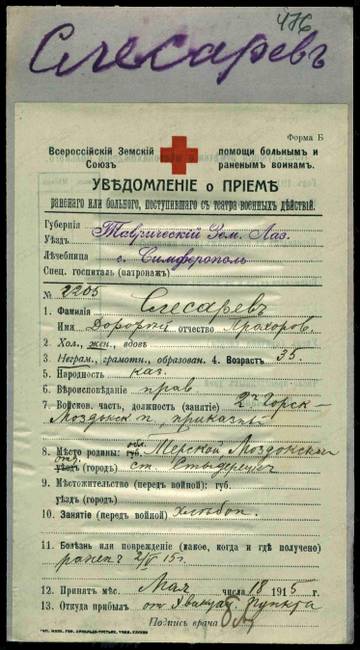 476
Слесаревъ
Форма Б
Всероссійскій Земскій Союзъ
помощи больнымъ и раненымъ воинамъ.
УВѢДОМЛЕНІЕ о ПРІЕМѢ
раненаго или больного, поступившаго съ театра военныхъ дѣйствій.
Губернія Таврическій Зем. Лаз.
Уѣздъ
Лѣчебница г. Симферополь
Спец. госпиталь (патронажъ)
№ 2205
1. Фамилія Слесаревъ
Имя Дорофѣй отчество Прохоров.
2. Хол., жен., вдовъ
3. Неграм., грамотн., образован. 4. Возрастъ 35.
5. Народность каз.
6. Вѣроисповѣданіе прав
7. Войсков. часть, должность (занятіе) 2й Горск-
Моздокск п, приказный
8. Мѣсто родины: обл. губ. Терской Моздокскаго
отд. уѣздъ (городъ) ст.
9. Мѣстожительство (передъ войной): губ.
уѣздъ (городъ)
10. Занятіе (передъ войной) хлѣбоп.
11. Болѣзнь или поврежденіе (какое, когда и гдѣ получено)
раненъ 2/V 15 г.
12. Принятъ мѣс. Мая числа 18 1915 г.
13. Откуда прибылъ от Эвакуац. Пункта
Подпись врача